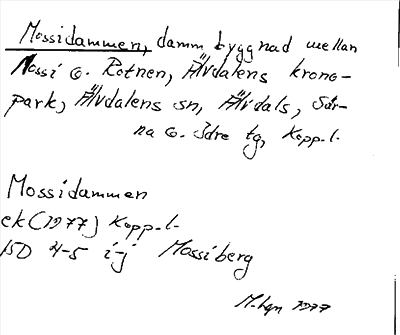 Mossidammen, dammbyggnad mellan
Mossi o. Rotnen, Älvdalens krono-
park, Älvdalens sn, Älvdals, Sär-
na o. Idre tg, Kopp.l.
Mossidammen
ek (1977) Kopp.l.
15D 4-5 i-j Mossiberg
M.hgn 1977